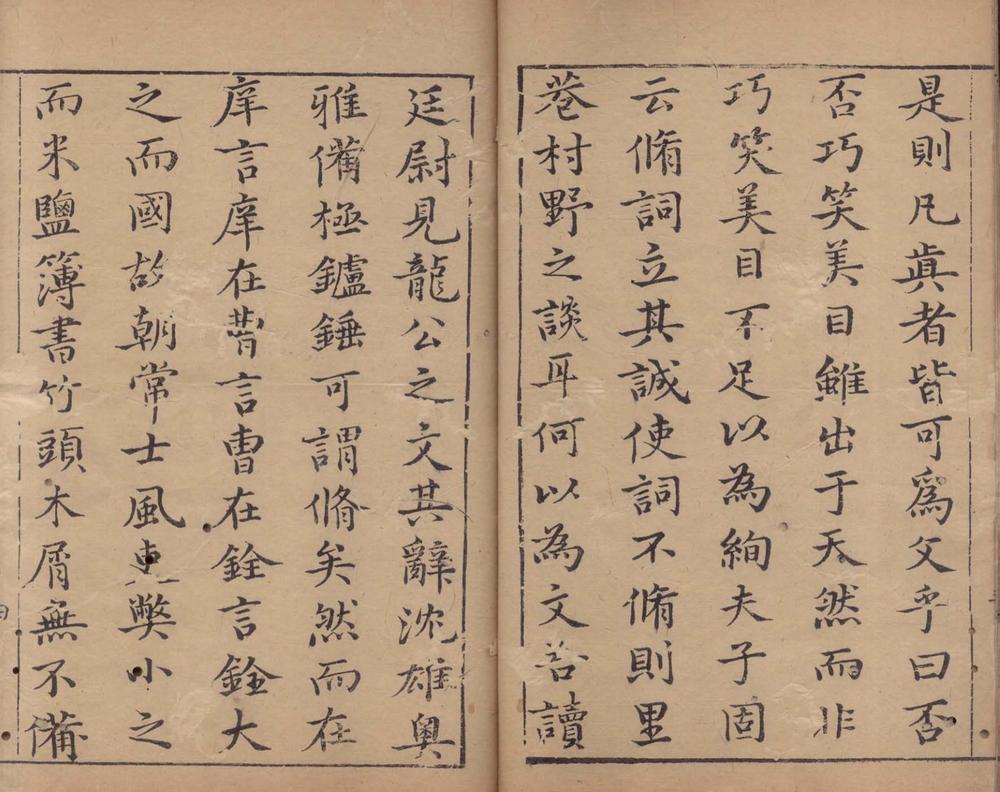 是則凡眞者皆可爲文乎曰否
否巧笑美目雖出于天然而非
巧笑美目不足以為絢夫子固
云脩詞立其誠使詞不脩則里
巷村野之談耳何以為文善讀
廷尉見龍公之文其辭沈雄奥
雅備極鑪錘可謂脩矣然而在
庠言庠在曹言曹在銓言銓大
之而國故朝常士風吏弊小之
而米鹽簿書竹頭木屑無不備